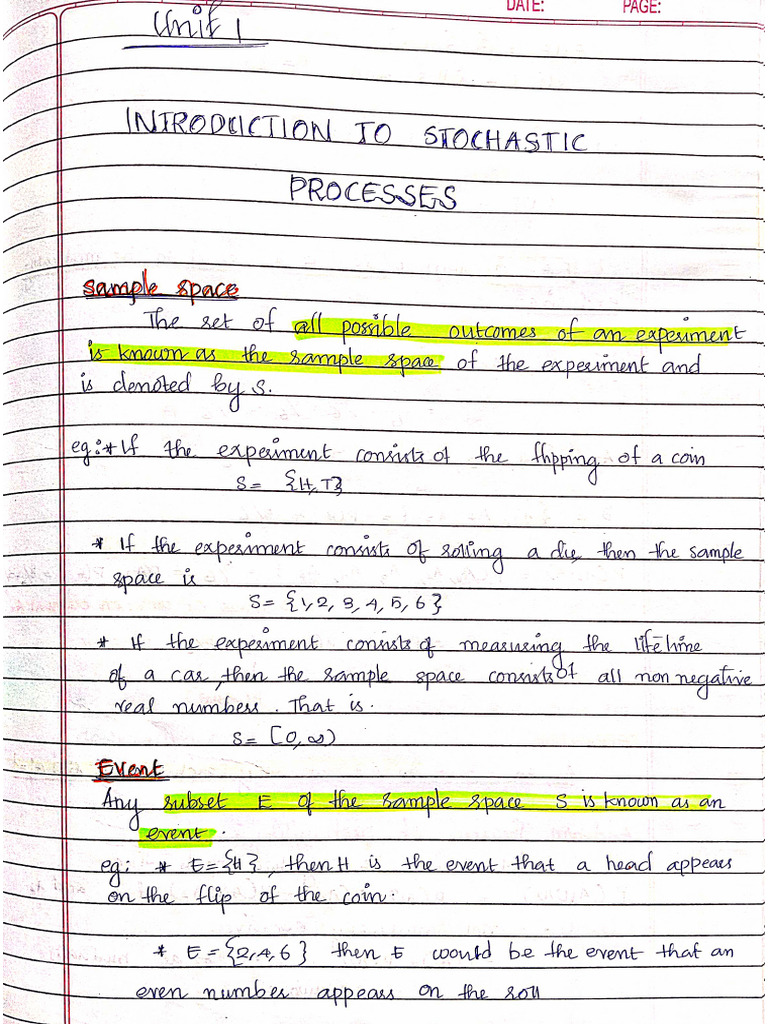 DATE: PAGE:
Unit 1
INTRODUCTION TO STOCHASTIC
PROCESSES
Sample space
The set of all possible outcomes of an experiment
is known as the sample space of the experiment and
is denoted by S.
eg:* If the experiment consists of the flipping of a coin
S= {H,T}
* If the experiment consists of rolling a die, then the sample
space is
S= {1,2,3,4,5,6}
* If the experiment consists of measuring the lifetime
of a car, then the sample space consists of all non negative
real numbers. That is.
S= [0,∞)
Event
Any subset E of the sample space S is known as an
event.
eg: * E={H}, then H is the event that a head appears
on the flip of the coin.
* E={2,4,6} then E would be the event that an
even number appears on the roll